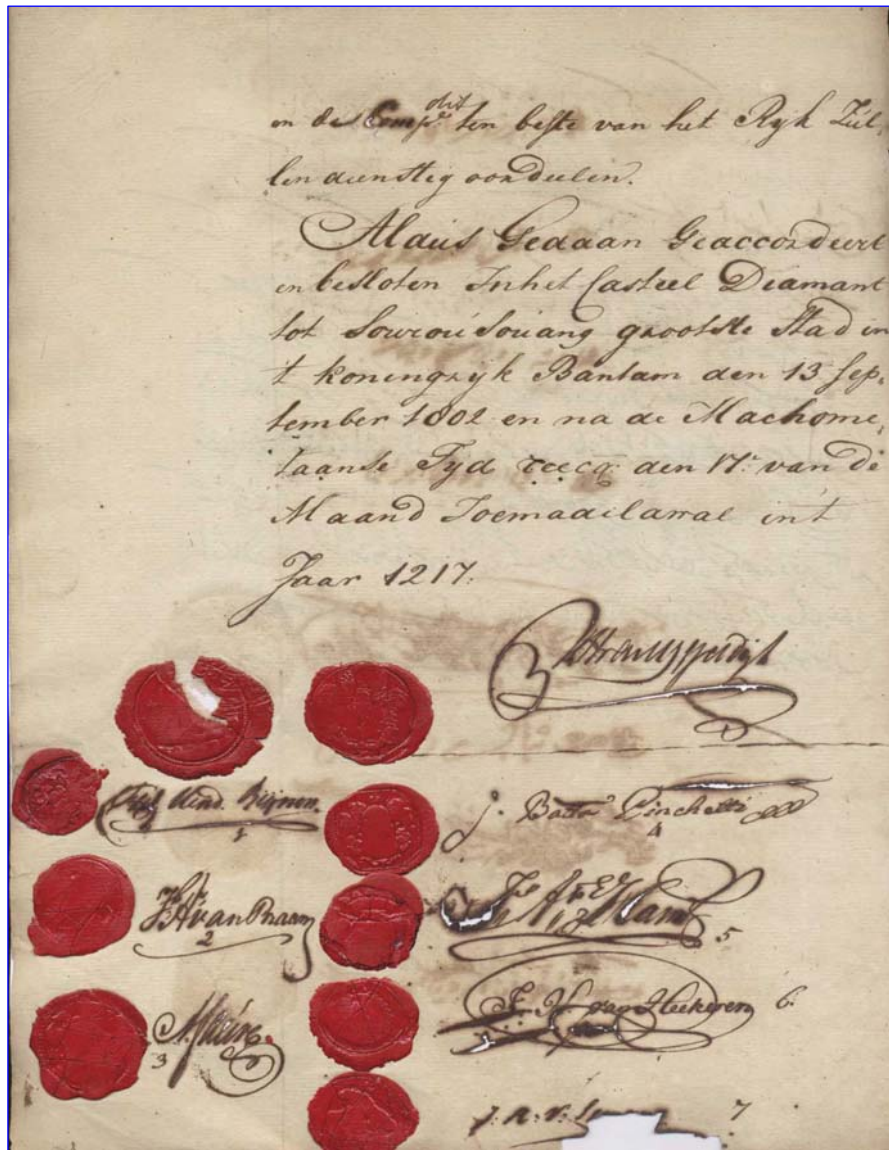 en des Comp.ᵉ dit ten beste van het Ryk Zúl,
len dienstig oordeelen.
Aldús Gedaan Geaccordeert
en besloten Inhet Casteel Diamant
tot Sourou Souang grootste Stad in
t koningryk Bantam den 13 Sep,
tember 1802 en na de Machome,
taanse Tyd den 17.ᵉ van de
Maand Joemaadilawal int
Jaar 1217.
1
J. Batta Pinchetti
4
van Braam
2
5
3
F. H. van Heekeren 6.
7